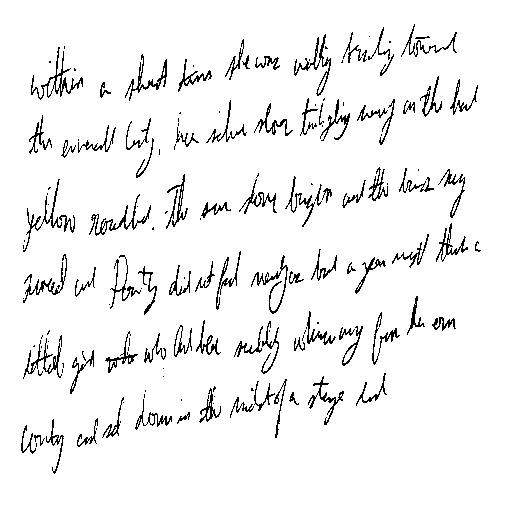 within a short time she was walking briskly toward
the emerald City, her silver shoes tinkling merrily on the hard
yellow roadbed. The sun shone bright and the birds sang
sweet and Dorothy did not feel nearly as bad as you might think a
little girl who had been suddenly whisked away from her own
country and set down in the midst of a strange land